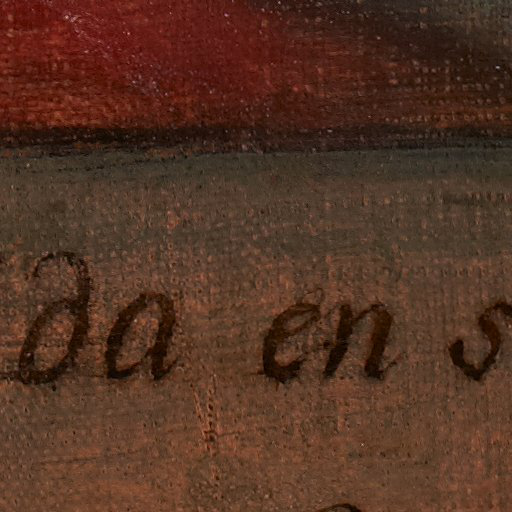 da en s